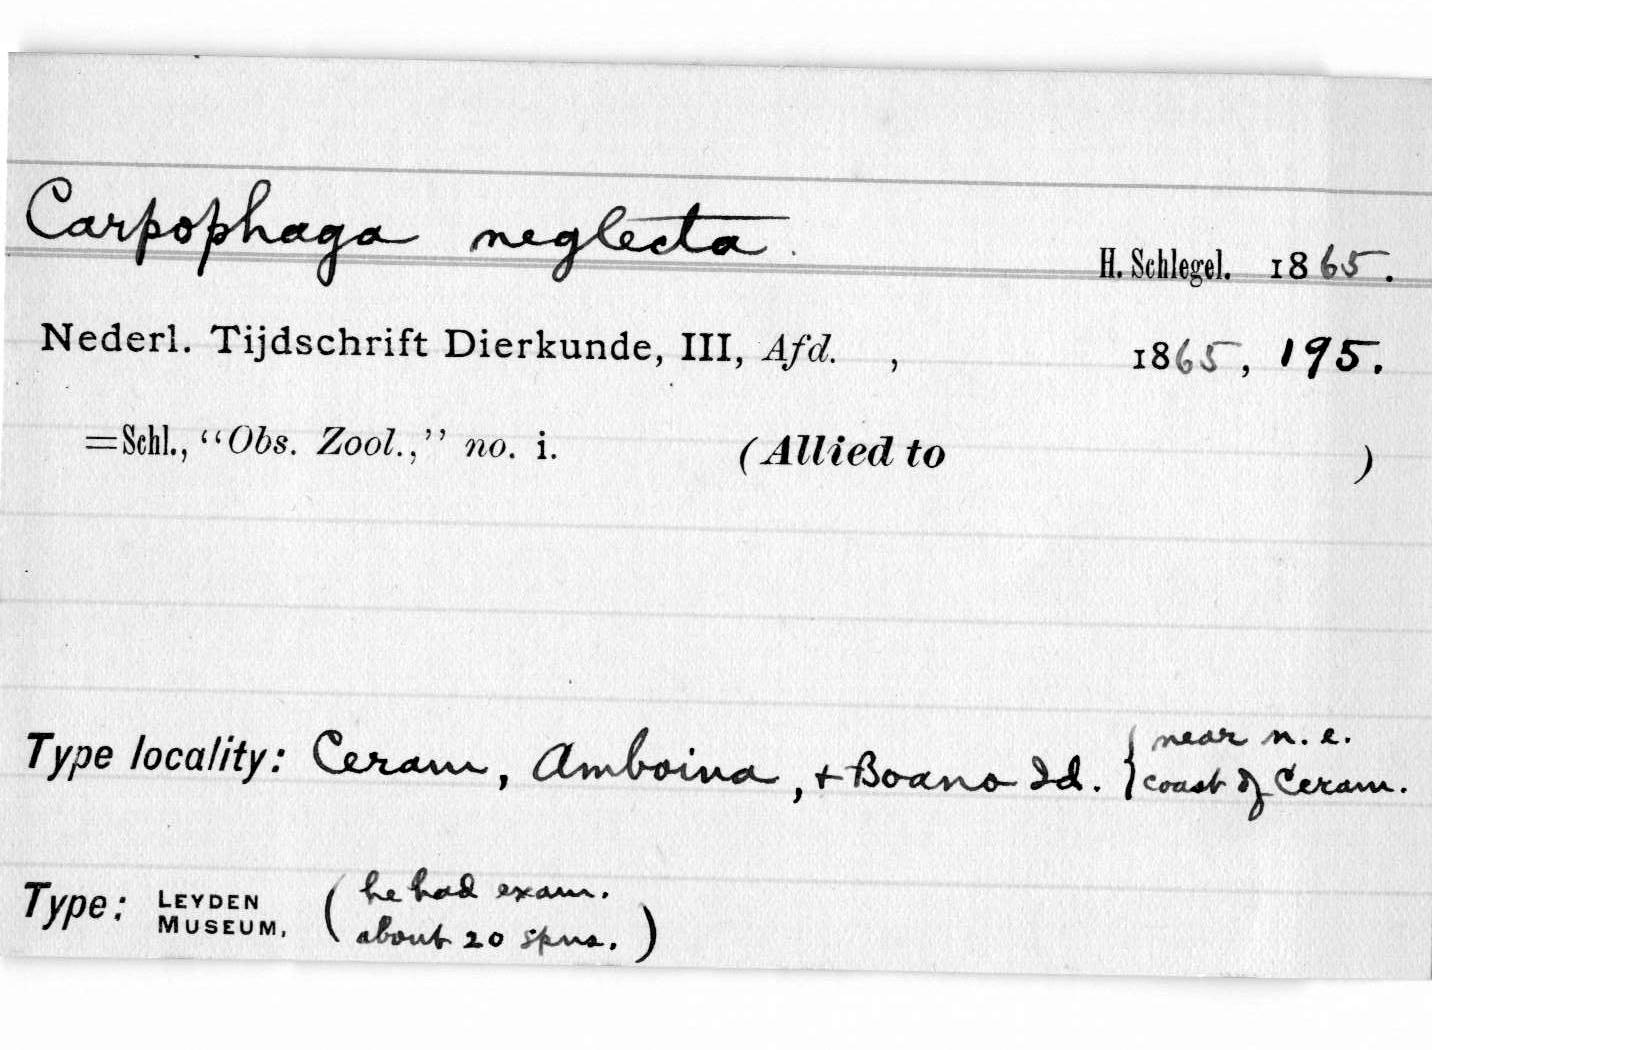 Carpophaga neglecta.
H. Schlegel. 1865.
Nederl. Tijdschrift Dierkunde, III, Afd. , 1865, 195.
=Schl., "Obs. Zool.," no. i. (Allied to )
Type locality: Ceram, Amboina, + Boano Id. { near n. e.
coast of Ceram.
Type: LEYDEN MUSEUM, ( he had exam.
about 20 spns. )